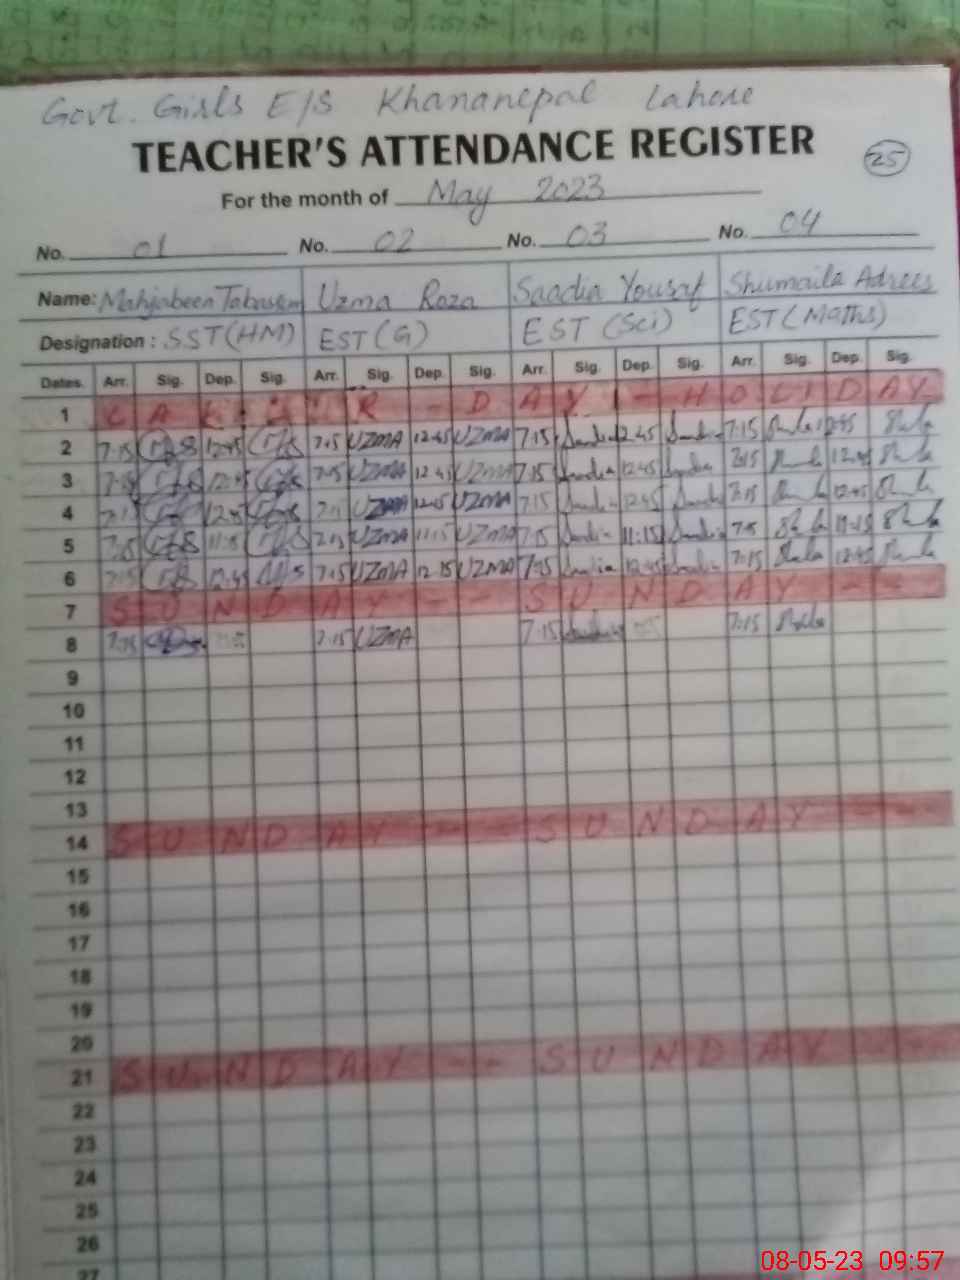 Govt. Girls E/S Khananepal Lahore
TEACHER'S ATTENDANCE REGISTER
25
For the month of May 2023
No. 01 No. 02 No. 03 No. 04
Name: Mahjabeen Tabasem Uzma Roza Saadia Yousaf Shumaila Adrees
Designation : SST(HM) EST(G) EST (Sci) EST(Maths)
Dates. Arr. Sig. Dep. Sig. Arr. Sig. Dep. Sig. Arr. Sig. Dep. Sig. Arr. Sig. Dep. Sig.
1 R - DAY - HOLIDAY
2 7:15 12:45 7:15 UZMA 12:45 UZMA 7:15 Saadia 12:45 Saadia 7:15 12:45
3 7:15 12:45 7:15 UZMA 12:45 UZMA 7:15 Saadia 12:45 Saadia 7:15 12:45
4 7:15 12:45 7:15 UZMA 12:45 UZMA 7:15 Saadia 12:45 Saadia 7:15 12:45
5 7:15 11:15 7:15 UZMA 11:15 UZMA 7:15 Saadia 11:15 Saadia 7:15 11:15
6 7:15 12:45 7:15 UZMA UZMA 7:15 Saadia 12:45 Saadia 7:15 12:45
7 SUNDAY - - SUNDAY - -
8 7:15 7:15 UZMA 7:15 7:15
9
10
11
12
13
14 SUNDAY - - SUNDAY - -
15
16
17
18
19
20
21 SUNDAY - - SUNDAY - -
22
23
24
25
26
27
08-05-23 09:57